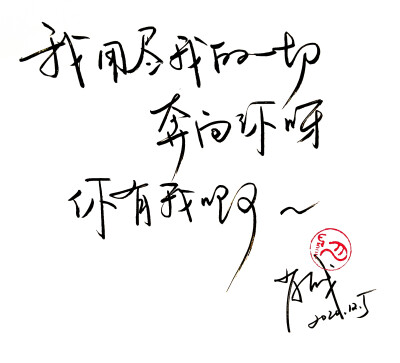 我用尽我的一切
奔向你呀
你有我呢
2020.12.5